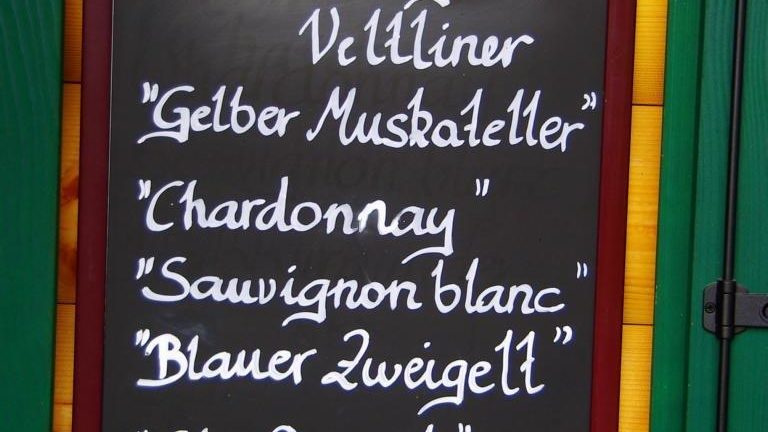 Veltliner
"Gelber Muskateller"
"Chardonnay"
"Sauvignon blanc"
"Blauer Zweigelt"